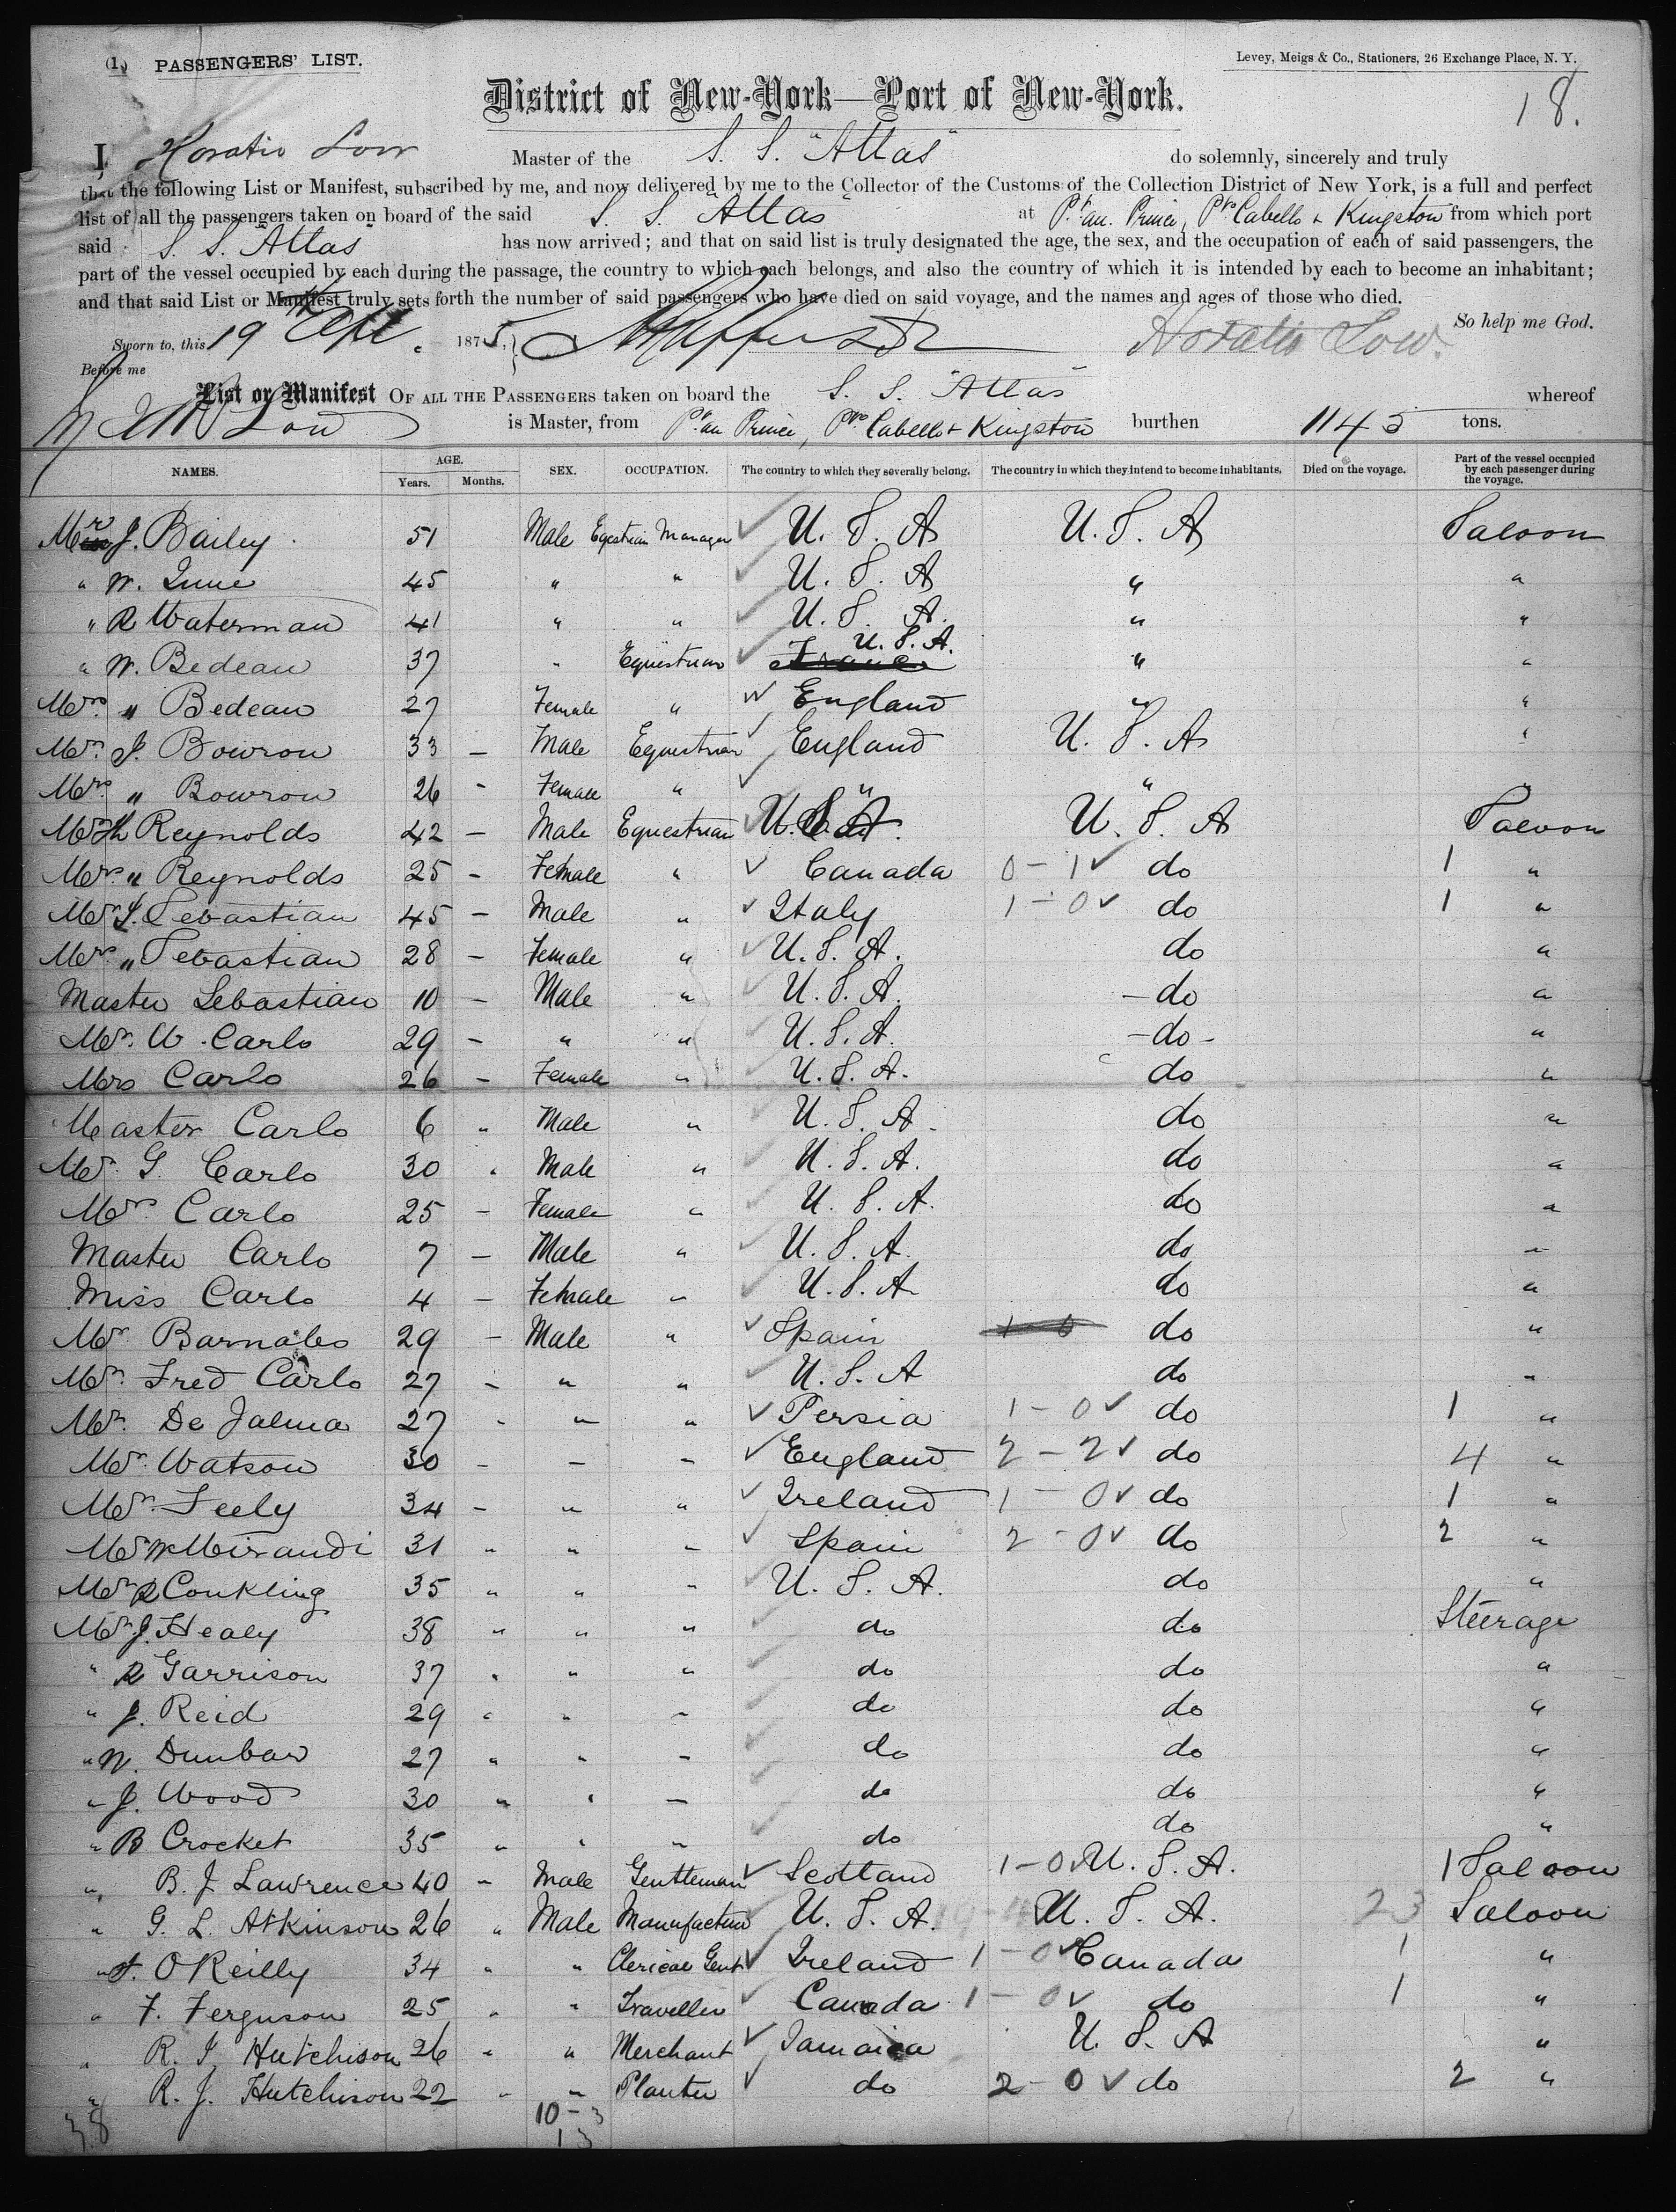 (1) PASSENGERS' LIST.
Levey, Meigs & Co., Stationers, 26 Exchange Place, N. Y.
18.
District of New-York—Port of New-York.
I, Horatio Low Master of the S. S. "Atlas" do solemnly, sincerely and truly
that the following List or Manifest, subscribed by me, and now delivered by me to the Collector of the Customs of the Collection District of New York, is a full and perfect
list of all the passengers taken on board of the said S. S. "Atlas" at Pt. au. Prince, Pto Cabello & Kingston from which port
said S. S. "Atlas" has now arrived; and that on said list is truly designated the age, the sex, and the occupation of each of said passengers, the
part of the vessel occupied by each during the passage, the country to which each belongs, and also the country of which it is intended by each to become an inhabitant;
and that said List or Manifest truly sets forth the number of said passengers who have died on said voyage, and the names and ages of those who died.
So help me God.
Sworn to, this 19 Sept. 1875, Horatio Low.
Before me
List or Manifest OF ALL THE PASSENGERS taken on board the S. S. "Atlas" whereof
Low is Master, from Pt. au Prince, Pto Cabello & Kingston burthen 1145 tons.
NAMES. AGE. Years. Months. SEX. OCCUPATION. The country to which they severally belong. The country in which they intend to become inhabitants. Died on the voyage. Part of the vessel occupied by each passenger during the voyage.
Mr J. Bailey 51 Male Eqestrian Manager U. S. A U. S. A Saloon
" W. June 45 " " U. S. A " "
" R Waterman 41 " " U. S. A. " "
" W. Bedeau 37 " Equestrian France U. S. A. " "
Mrs. " Bedeau 27 Female " England " "
Mr. J. Bowron 33 – Male Equestrian England U. S. A "
Mrs. " Bowron 26 - Female " " " "
Mr H Reynolds 42 – Male Equestrian U. S. A. U. S. A Saloon
Mrs. " Reynolds 25 – Female " Canada 0 – 1 do 1 "
Mr S. Sebastian 45 – Male " Italy 1 – 0 do 1 "
Mrs. " Sebastian 28 – Female " U. S. A. do "
Master Sebastian 10 – Male " U. S. A. – do "
Mr. W. Carlo 29 – " " U. S. A. – do – "
Mrs Carlo 26 – Female " U. S. A. do "
Master Carlo 6 " Male " U. S. A. do "
Mr. G. Carlo 30 " Male " U. S. A. do "
Mrs. Carlo 25 – Female " U. S. A. do "
Master Carlo 7 – Male " U. S. A. do "
Miss Carlo 4 – Female " U. S. A. do "
Mr Barnabo 29 – Male " Spain 1 – 0 do "
Mr. Fred Carlo 27 – " " U. S. A do "
Mr. De Jalma 27 " " " Persia 1 – 0 do 1 "
Mr. Watson 30 – – – England 2 – 2 do 4 "
Mr. Feely 34 – " " Ireland 1 – 0 do 1 "
Mr W Mirandi 31 " " " Spain 2 – 0 do 2 "
Mr R Conkling 35 " " " U. S. A. do "
Mr. J. Healy 38 " " " do do Steerage
" R Garrison 37 " " " do do "
" J. Reid 29 " " " do do "
" W. Dunbar 27 " " – do do "
" J. Wood 30 " " – do do "
" B Crocket 35 " " " do do "
" B. J. Lawrence 40 " Male Gentleman Scotland 1 – 0 U. S. A. 1 Saloon
" G. L. Atkinson 26 " Male Manufacture U. S. A. U. S. A. 23 Saloon
" J. O'Reilly 34 " " Clerical Gent Ireland 1 – 0 Canada 1 "
" F. Ferguson 25 " " Traveller Canada 1 – 0 do 1 "
" R. I. Hutchison 26 " " Merchant Jamaica U. S. A "
" R. J. Hutchison 22 " " Planter do 2 – 0 do 2 "
38 10 – 3
13